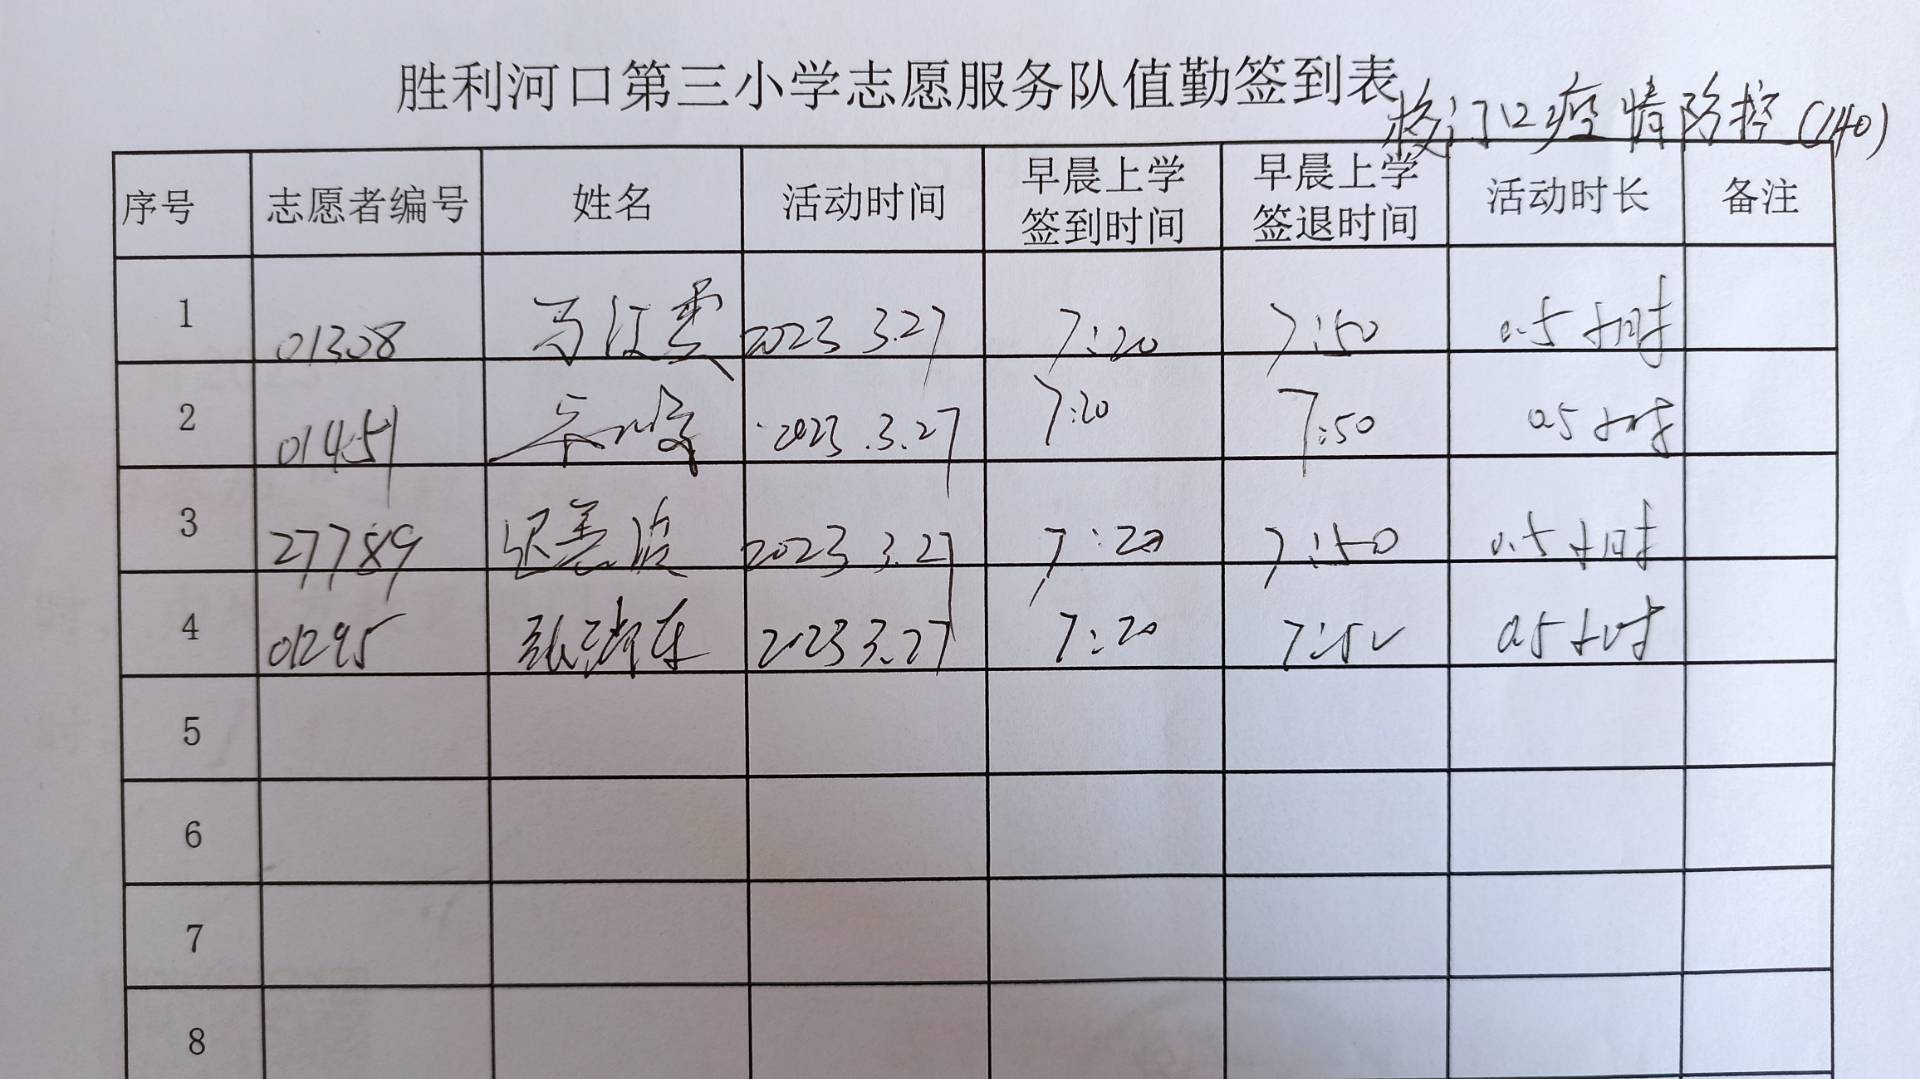 胜利河口第三小学志愿服务队值勤签到表
校门口疫情防控(140)
序号 志愿者编号 姓名 活动时间 早晨上学签到时间 早晨上学签退时间 活动时长 备注
1 01308 马江雲 2023 3.27 7:20 7:50 0.5小时
2 01451 2023.3.27 7:20 7:50 0.5小时
3 27789 迟善波 2023 3.27 7:20 7:50 0.5小时
4 01295 2023 3.27 7:20 7:50 0.5小时
5
6
7
8